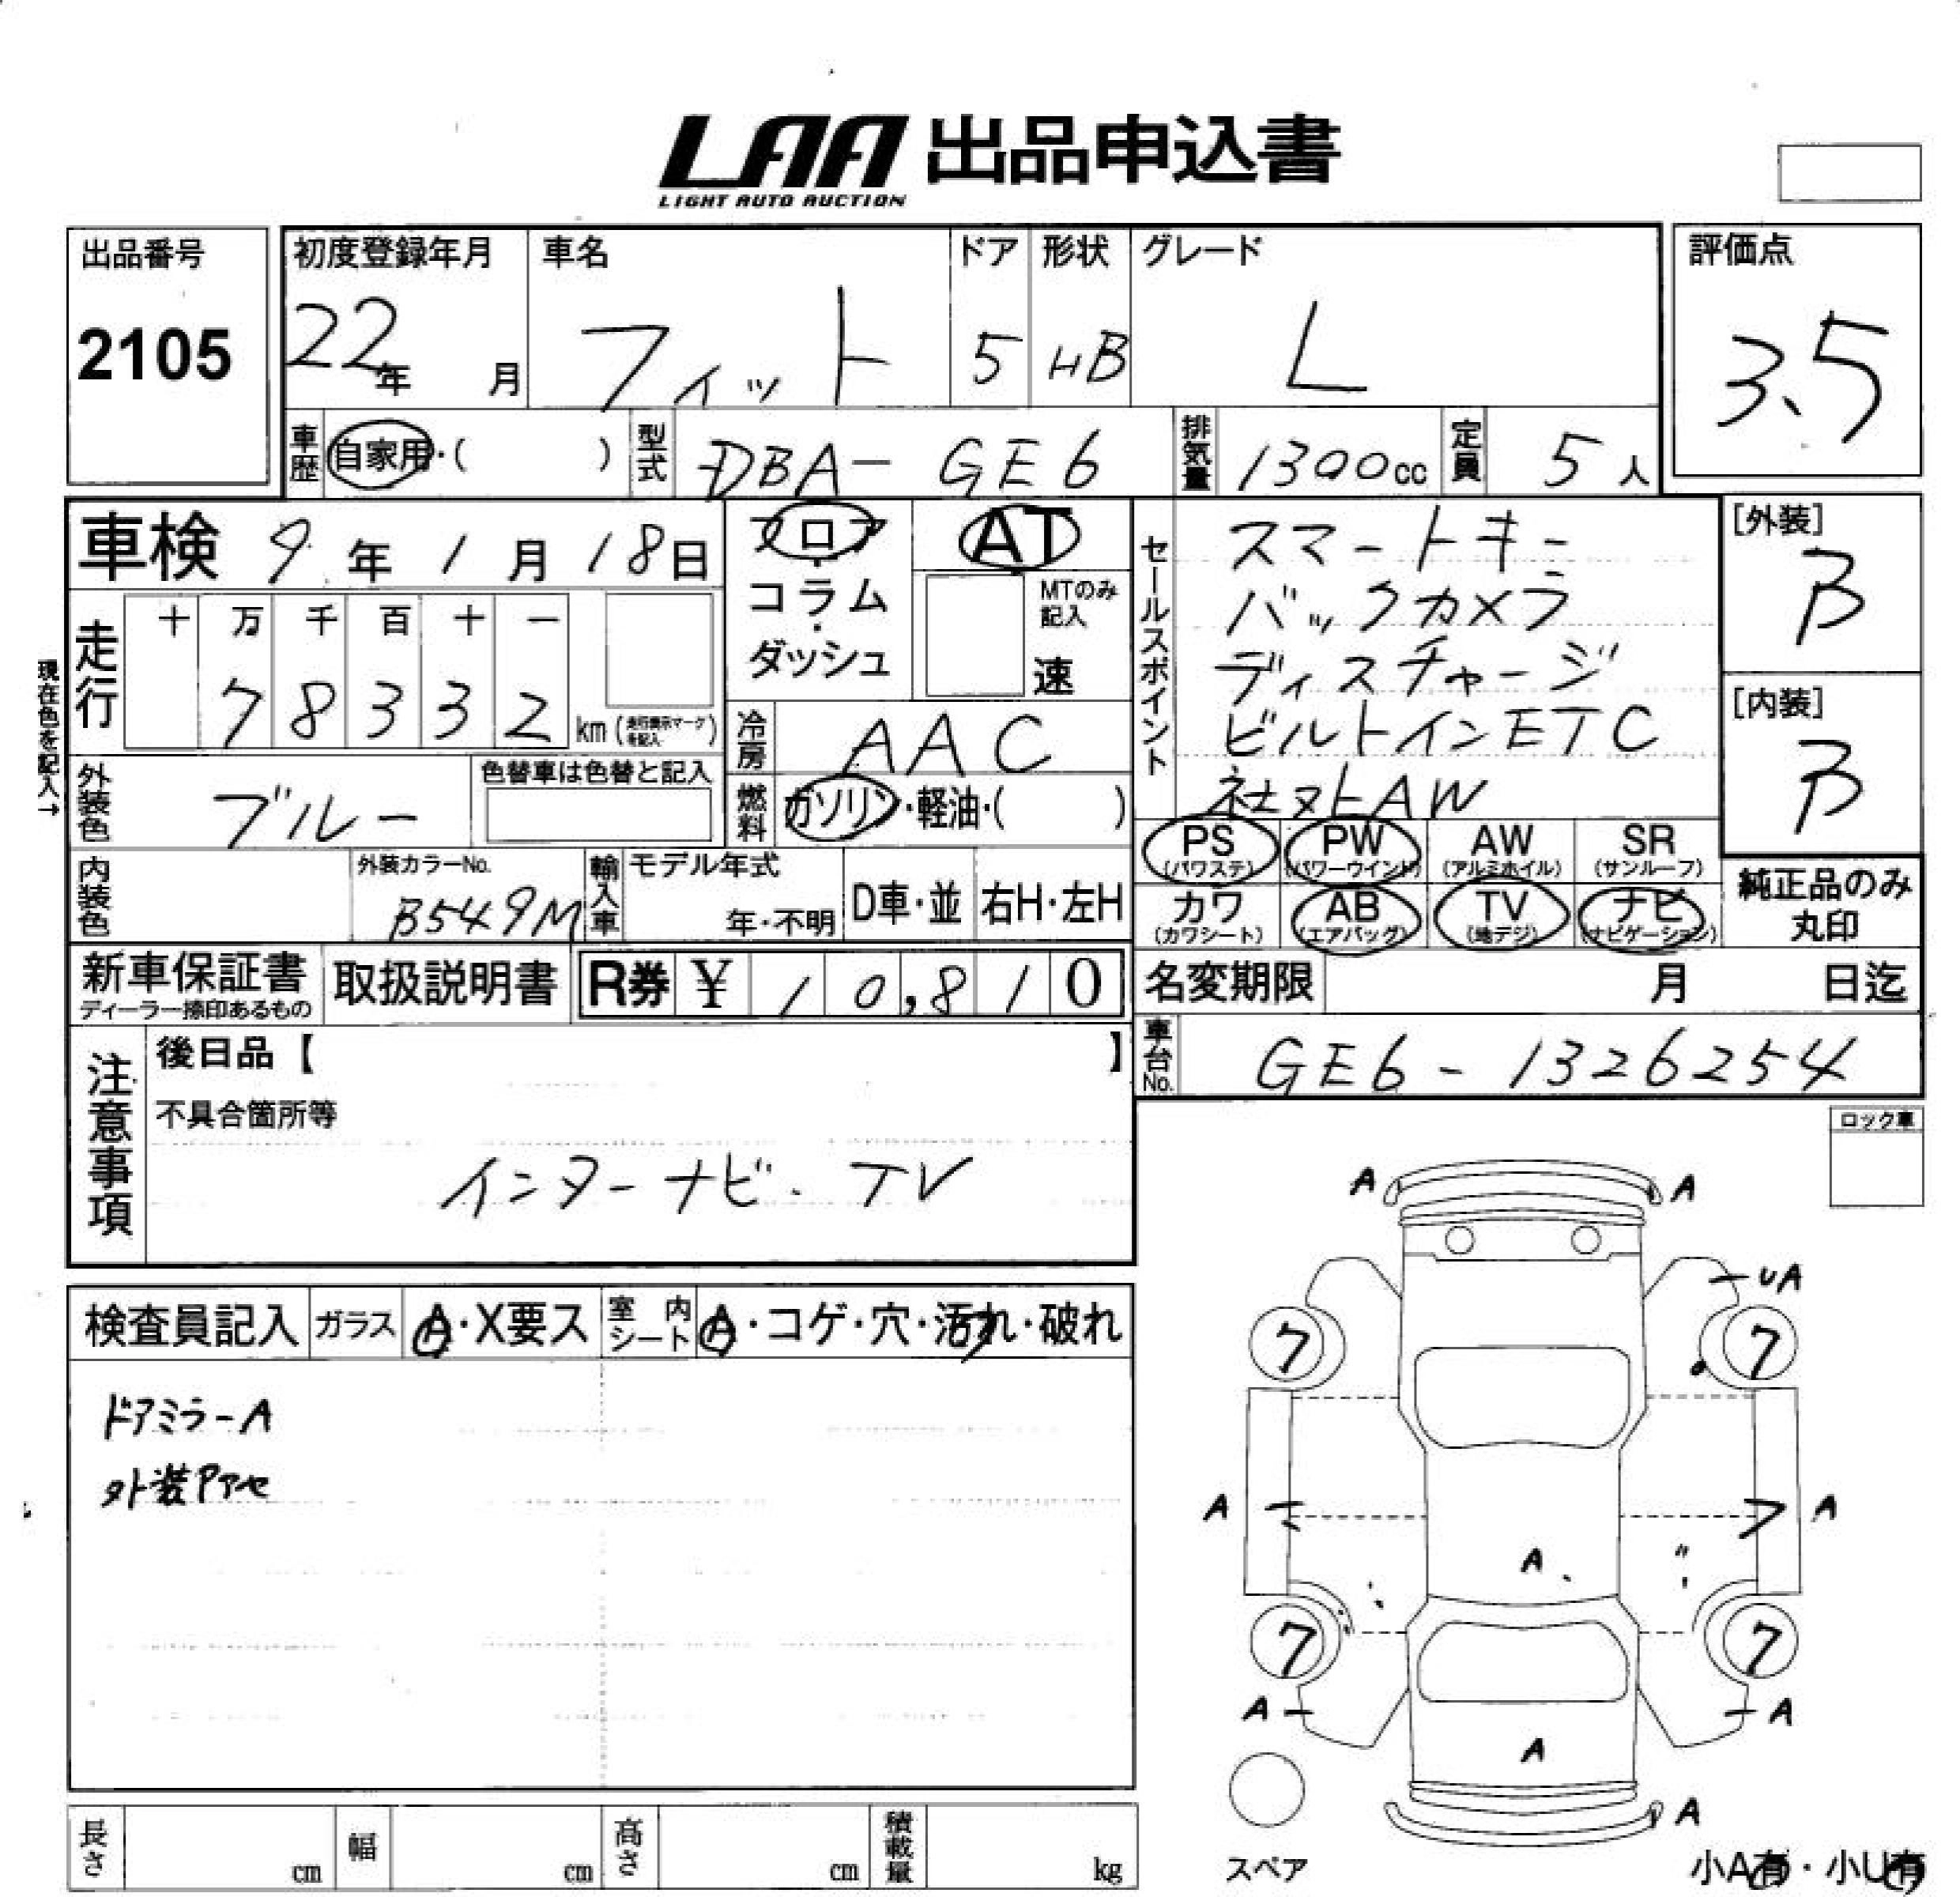 LAA 出品申込書
LIGHT AUTO AUCTION
出品番号
2105
初度登録年月
22年 月
車名
フィット
ドア
5
形状
HB
グレード
L
評価点
3.5
車歴 自家用・( )
型式 DBA-GE6
排気量 1300cc
定員 5人
車検 9年1月18日
フロア・コラム・ダッシュ
AT
MTのみ記入
速
セールスポイント
スマートキー
バックカメラ
ディスチャージ
ビルトインETC
社外AW
[外装]
B
[内装]
B
現在色を記入→
走行
十 万 千 百 十 一
7 8 3 3 2 km (走行表示マークを記入)
冷房 AAC
外装色 ブルー
色替車は色替と記入
燃料 ガソリン・軽油・( )
PS (パワステ)
PW (パワーウインド)
AW (アルミホイル)
SR (サンルーフ)
カワ (カワシート)
AB (エアバッグ)
TV (地デジ)
ナビ (ナビゲーション)
純正品のみ丸印
内装色
外装カラーNo.
B549M
輸入車
モデル年式
年・不明
D車・並
右H・左H
新車保証書
ディーラー捺印あるもの
取扱説明書
R券 ¥ 10,810
名変期限 月 日迄
車台No. GE6-1326254
注意事項
後日品【 】
不具合箇所等
インターナビ・TV
ロック車
検査員記入
ガラス A・X要ス
室内シート A・コゲ・穴・汚れ・破れ
ドアミラーA
外装Pアセ
A A
UA
7 7
A A
A
7 7
A A
A
A
スペア
小A有・小U有
長さ cm
幅 cm
高さ cm
積載量 kg